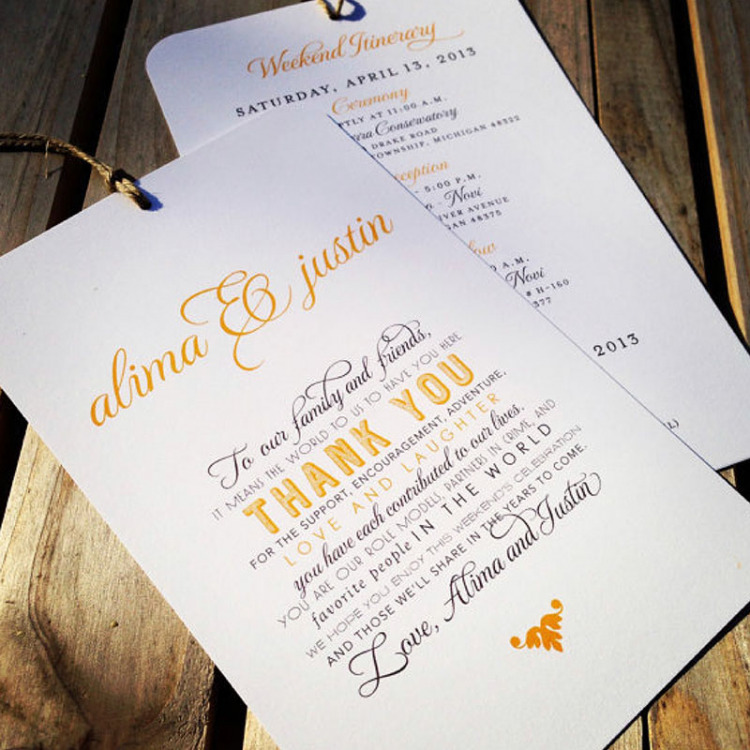 Weekend Itinerary
SATURDAY, APRIL 13, 2013
Ceremony
AT 11:00 A.M.
Conservatory
DRAKE ROAD
TOWNSHIP, MICHIGAN 48322
- 5:00 P.M.
- Novi
AVENUE
48375
A.M.
Novi
# H-160
2013
alima & justin
To our family and friends,
IT MEANS THE WORLD TO US TO HAVE YOU HERE
THANK YOU
FOR THE SUPPORT, ENCOURAGEMENT, ADVENTURE,
LOVE AND LAUGHTER
you have each contributed to our lives.
YOU ARE OUR ROLE MODELS, PARTNERS IN CRIME, AND
favorite people IN THE WORLD
WE HOPE YOU ENJOY THIS WEEKEND'S CELEBRATION
AND THOSE WE'LL SHARE IN THE YEARS TO COME.
Love, Alima and Justin